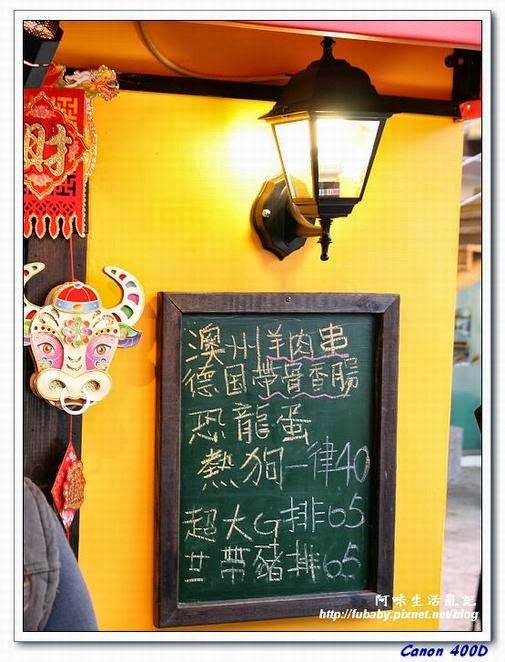 財
澳州羊肉串
德国帶骨香腸
恐龍蛋
熱狗一律40
超大G排65
廿帶豬排65
阿味生活亂記
http://fubaby.pixnet.net/blog
Canon 400D